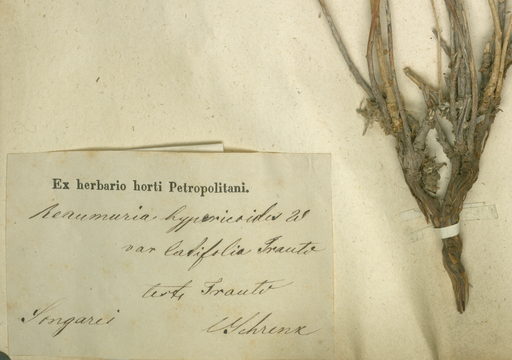 Ex herbario horti Petropolitani.
Reaumuria hypericoides W
var latifolia Trautv
teste Trautv
Songaria Schrenk